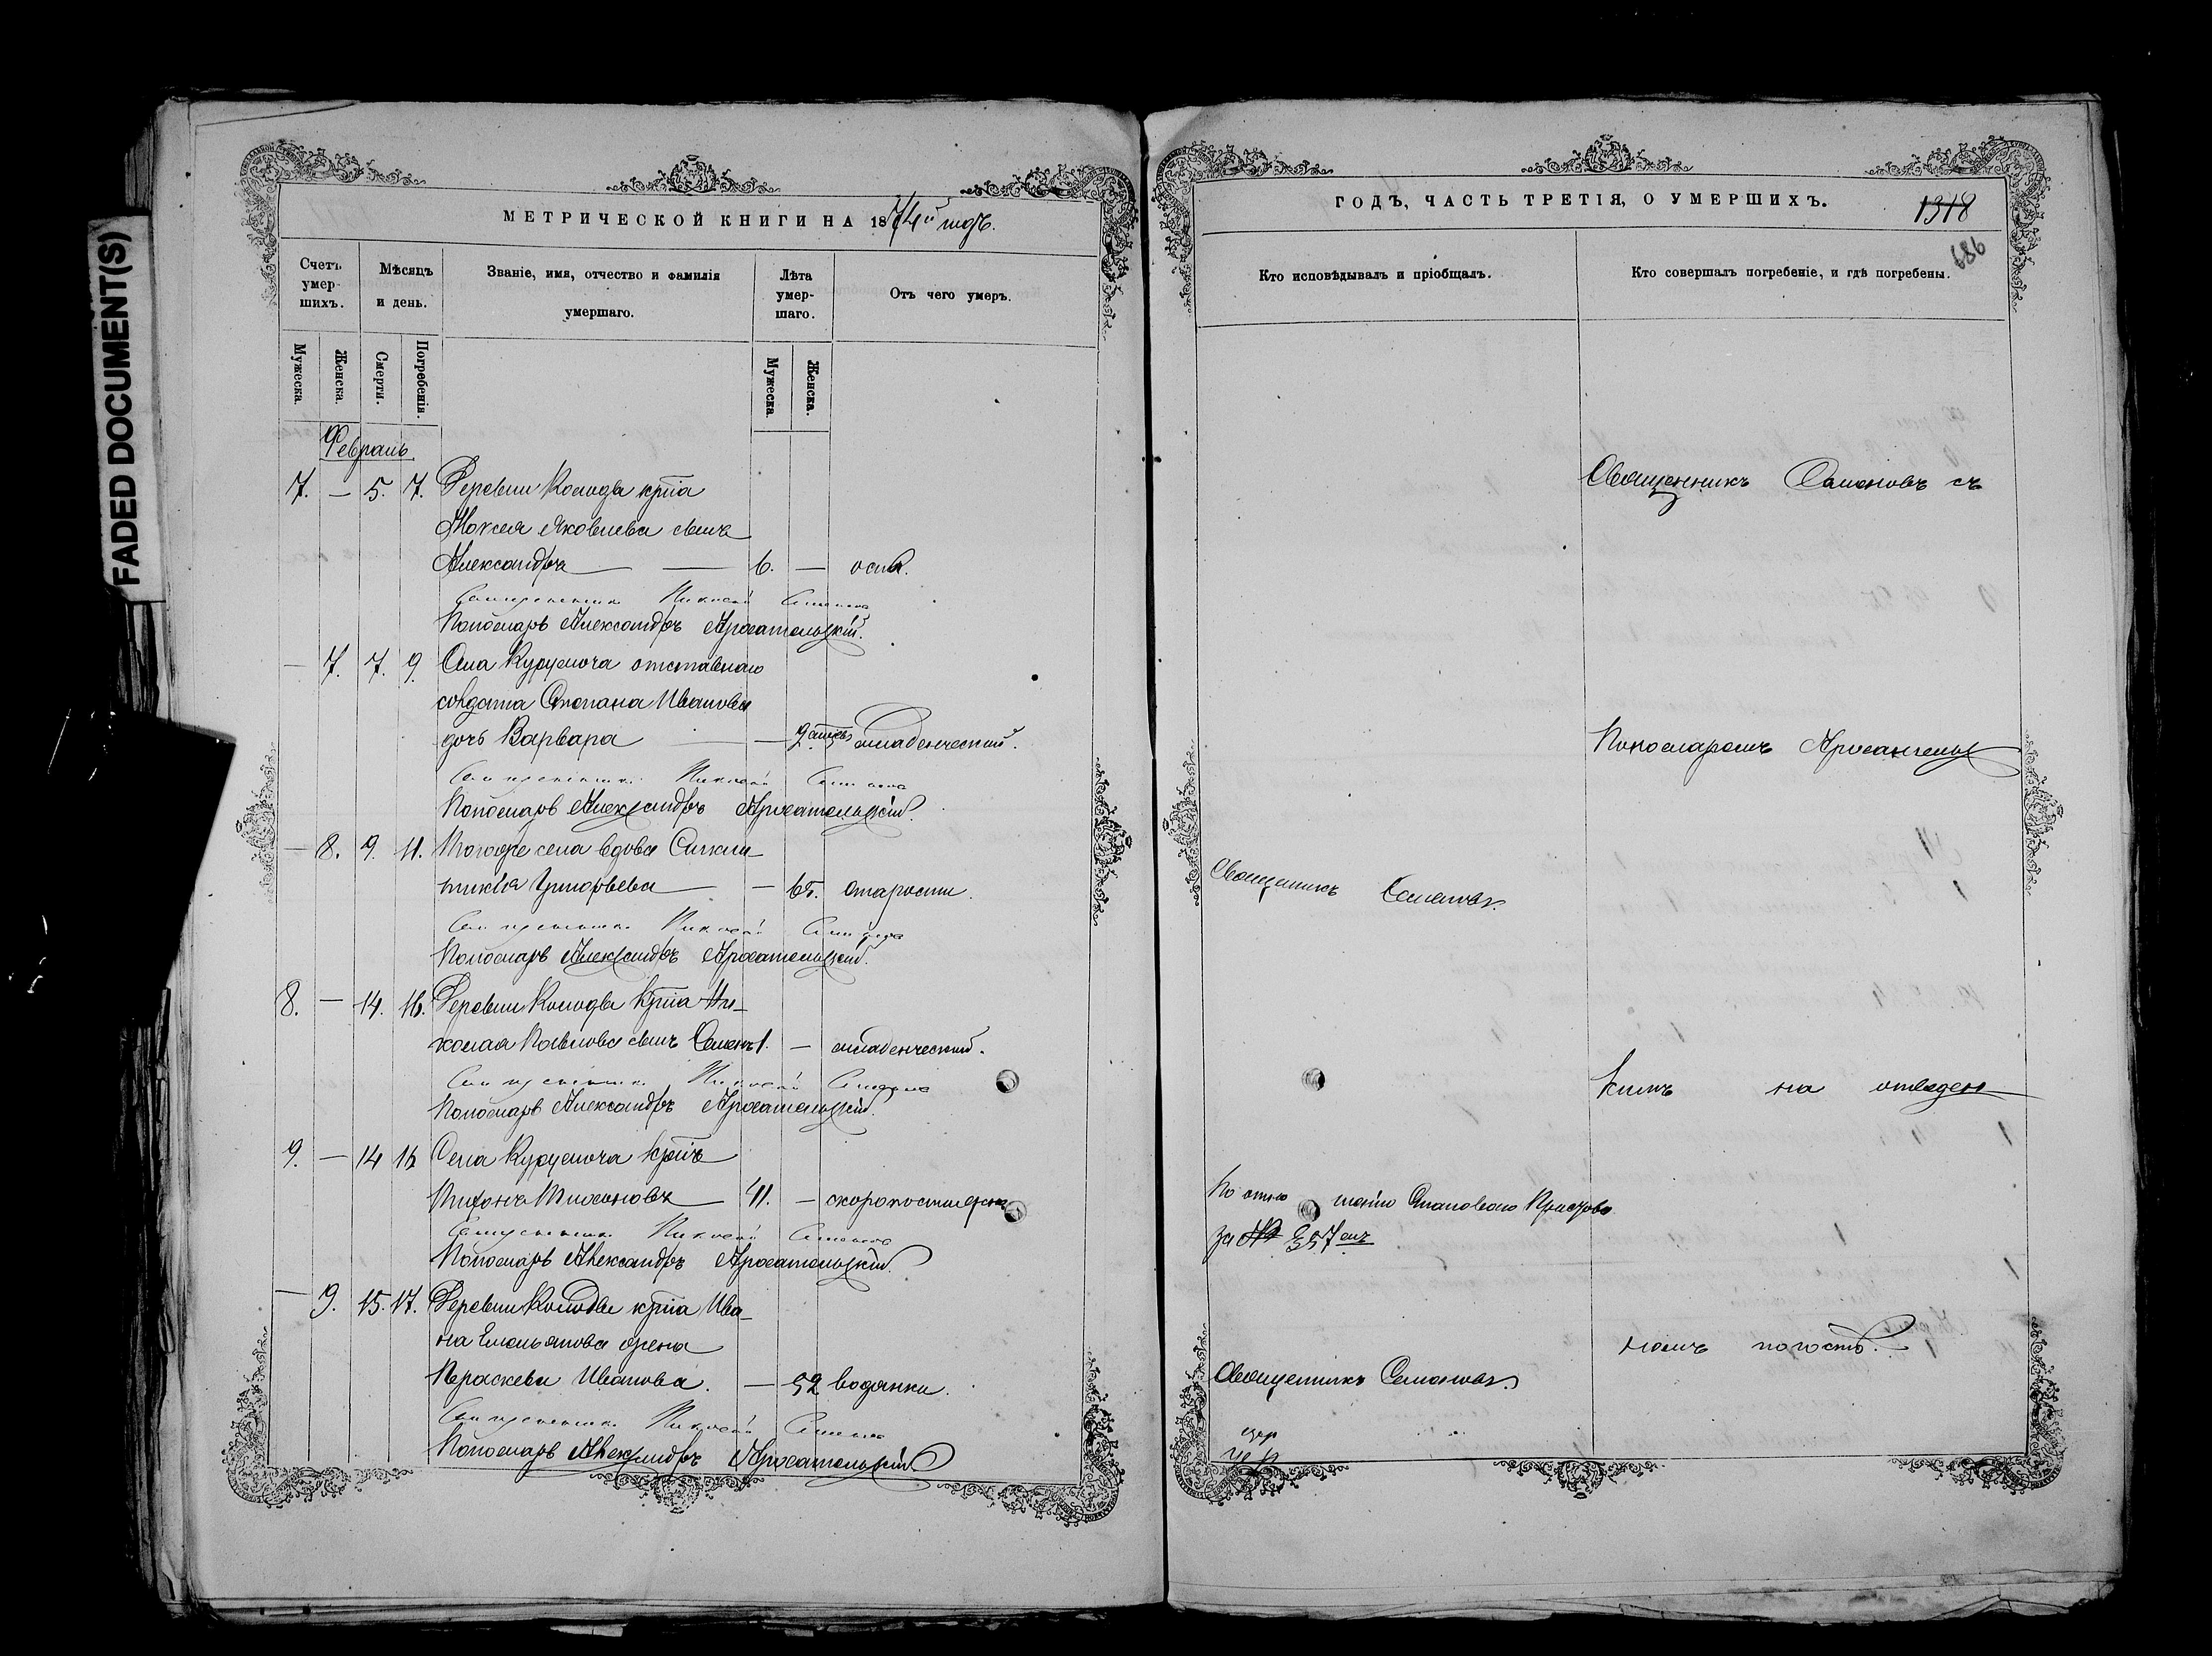 FADED DOCUMENT(S)
МЕТРИЧЕСКОЙ КНИГИ НА 1874й годъ.
Счетъ умершихъ.
Мѣсяцъ и день.
Званіе, имя, отчество и фамилія умершаго.
Лѣта умершаго.
Отъ чего умеръ.
Мужеска.
Женска.
Смерти.
Погребенія.
Мужеска.
Женска.
Февраль
7. — 5. 7. Деревни Колодѣ крт̃на
Яковлева сынъ
Александръ — 6. — оспы.
Священникъ Николай Семеновъ
Пономарь Александръ Архангельскій.
— 7. 7. 9. Села Курумоча отставного
солдата Степана Иванова
дочь Варвара — 2 младенческий.
Священникъ Николай Семеновъ
Пономарь Александръ Архангельскій.
— 8. 9. 11. Тогоже села вдова
Григорьева — — 65. старости.
Священникъ Николай Семеновъ
Пономарь Александръ Архангельскій.
8. — 14. 16. Деревни Колодѣ крт̃на Ни-
колая Павлова сынъ Семенъ 1. — младенческий.
Священникъ Николай Семеновъ
Пономарь Александръ Архангельскій.
9. — 14 16 Села Курумоча
Тихоновъ — 41. — скоропостижно
Священникъ Николай Семеновъ
Пономарь Александръ Архангельскій.
— 9. 15. 17. Деревни Колодѣ крт̃на Ива-
на Емельянова жена
Параскева Иванова. — 52 водянки.
Священникъ Николай Семеновъ
Пономарь Александръ Архангельскій
ГОДЪ, ЧАСТЬ ТРЕТІЯ, О УМЕРШИХЪ.
1318
686
Кто исповѣдывалъ и пріобщалъ.
Кто совершалъ погребеніе, и гдѣ погребены.
Священникъ Семеновъ съ
Пономаремъ Архангельс
Священникъ Семеновъ.
кимъ на отведен
По отно шенію Становаго Пристава
за № 357 емъ
номъ погостѣ.
Священникъ Семеновъ.